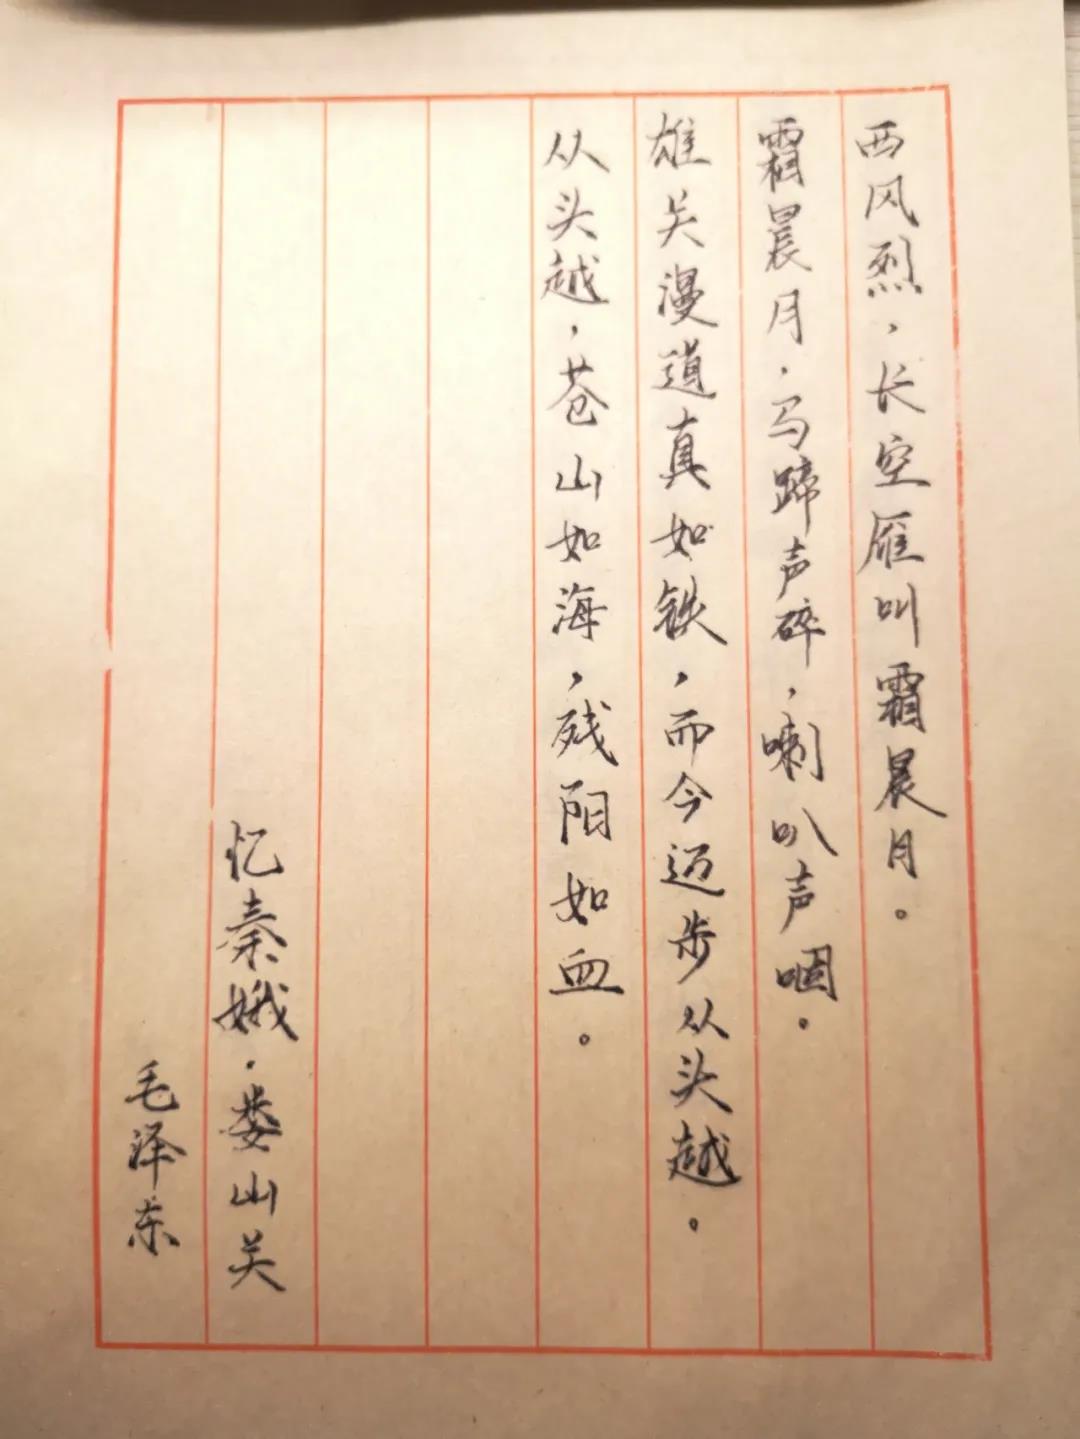 西风烈，长空雁叫霜晨月。
霜晨月，马蹄声碎，喇叭声咽。
雄关漫道真如铁，而今迈步从头越。
从头越，苍山如海，残阳如血。
忆秦娥·娄山关
毛泽东